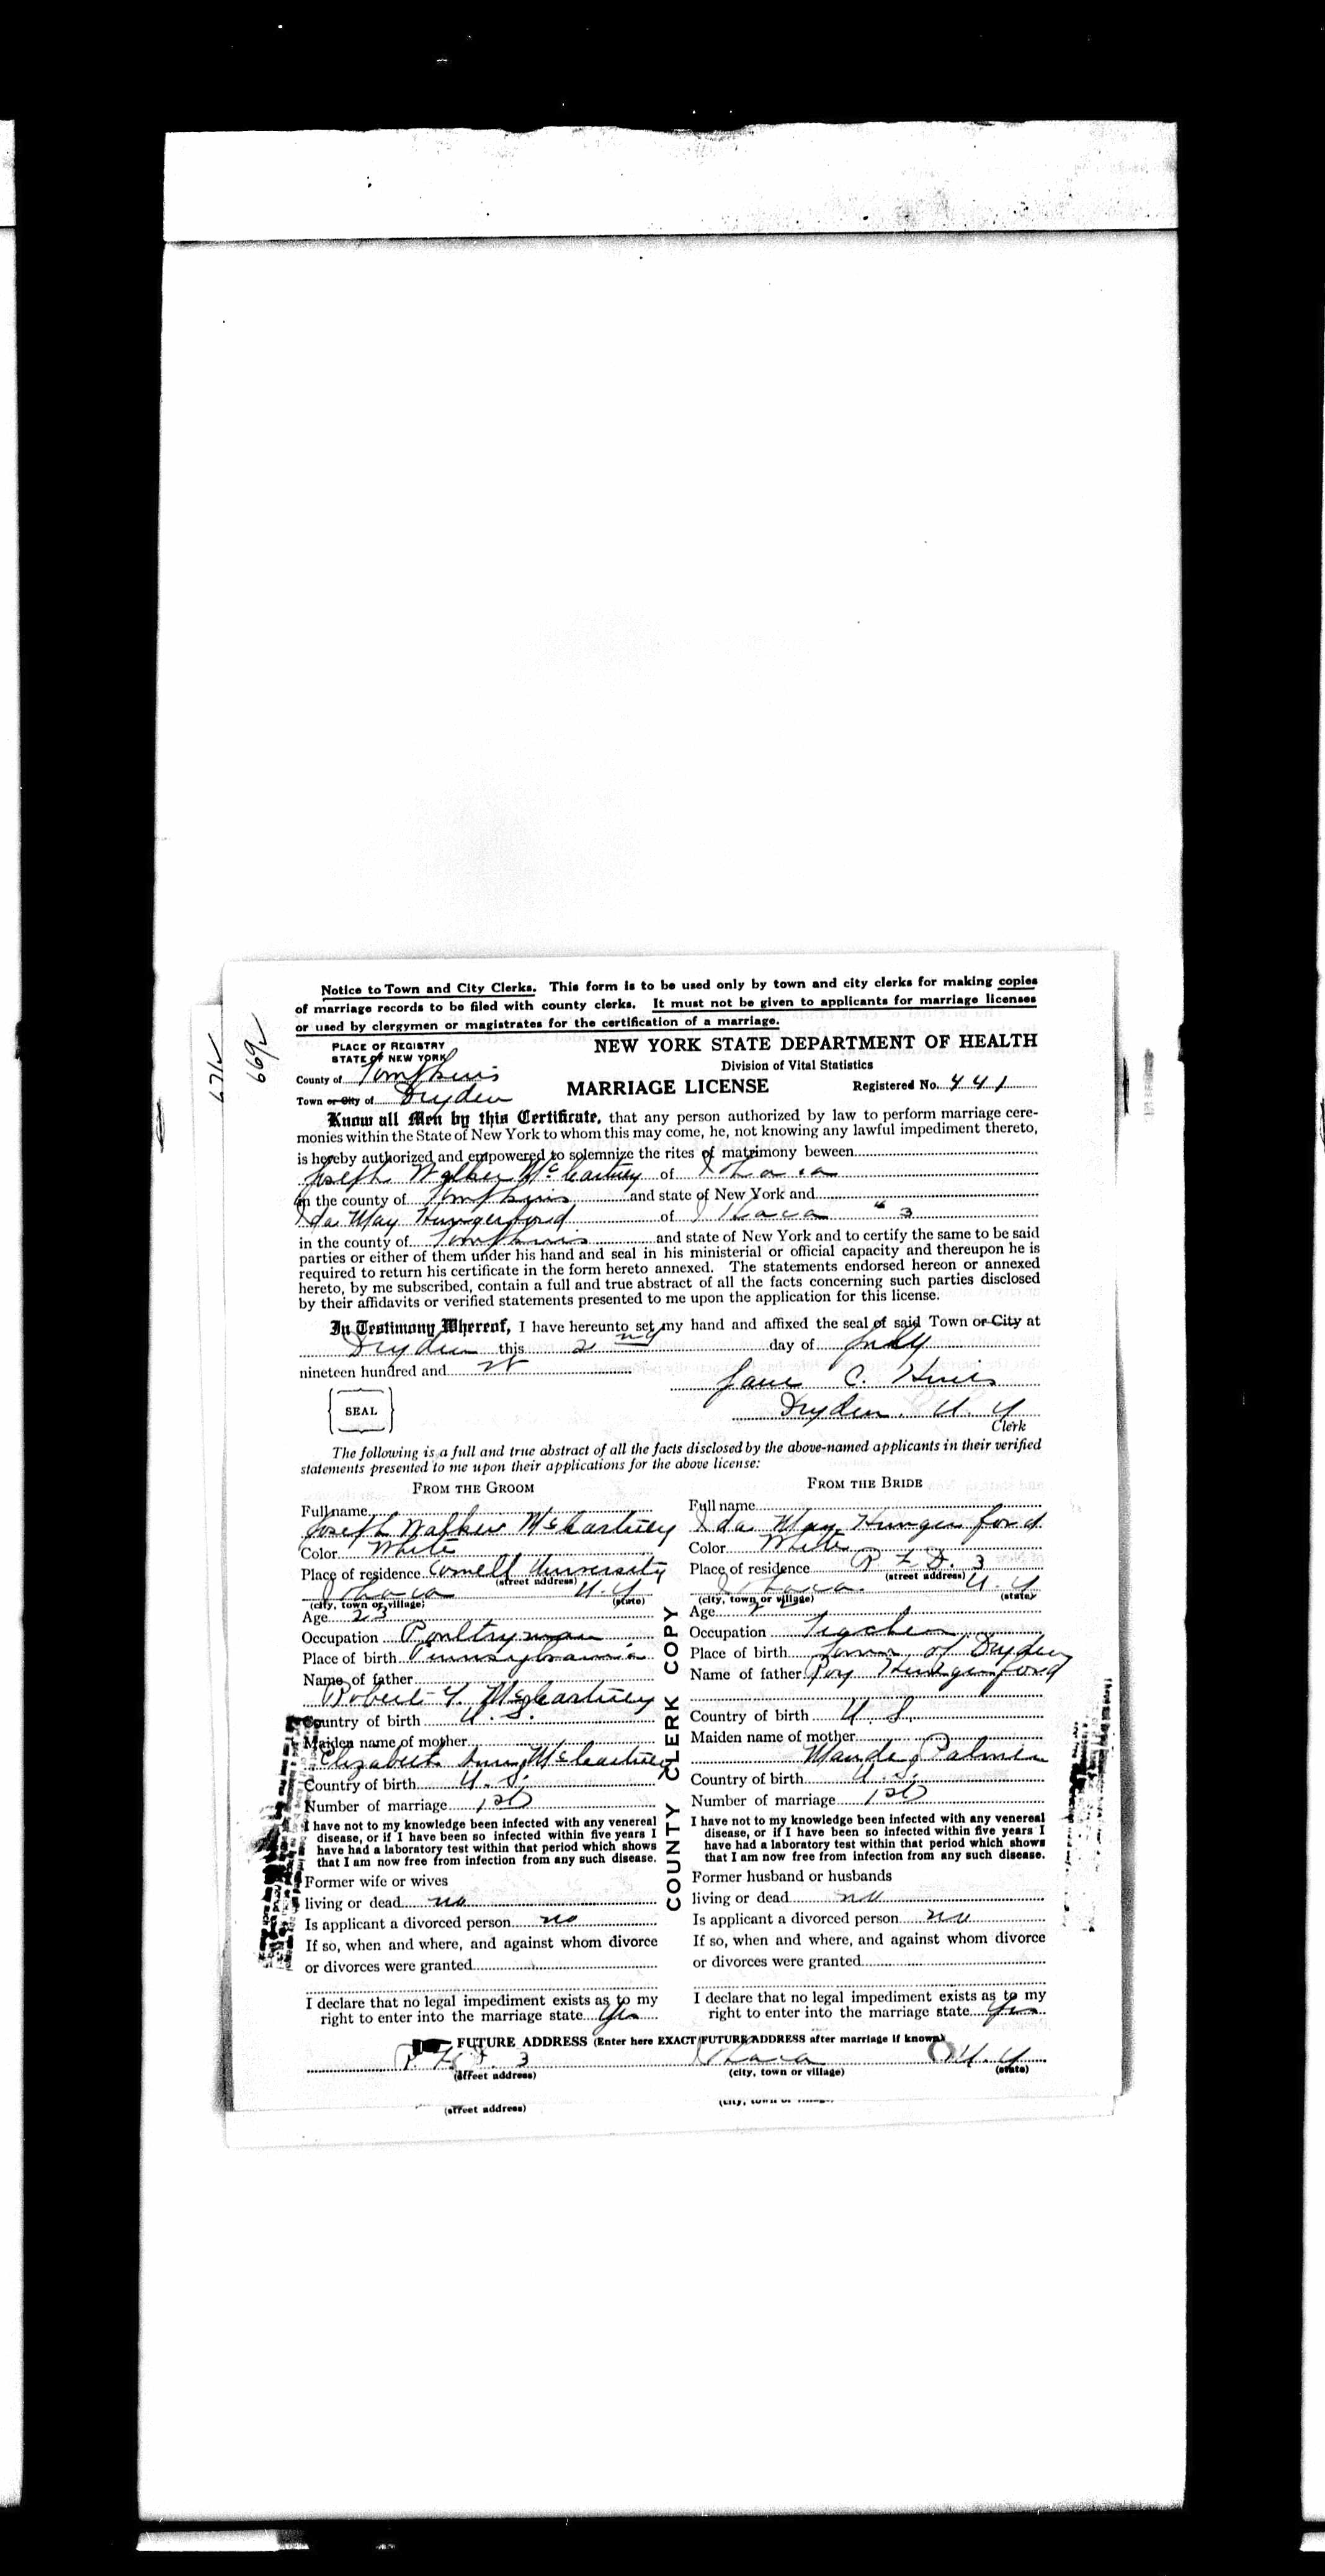 Notice to Town and City Clerks. This form is to be used only by town and city clerks for making copies
of marriage records to be filed with county clerks. It must not be given to applicants for marriage licenses
or used by clergymen or magistrates for the certification of a marriage.
671
669
PLACE OF REGISTRY
STATE OF NEW YORK
NEW YORK STATE DEPARTMENT OF HEALTH
Division of Vital Statistics
County of Tompkins
MARRIAGE LICENSE
Registered No. 441
Town or City of Dryden
Know all Men by this Certificate, that any person authorized by law to perform marriage cere-
monies within the State of New York to whom this may come, he, not knowing any lawful impediment thereto,
is hereby authorized and empowered to solemnize the rites of matrimony beween
Joseph Walker McCartney of Ithaca
in the county of Tompkins and state of New York and
Ida May Hungerford of Ithaca " 3
in the county of Tompkins and state of New York and to certify the same to be said
parties or either of them under his hand and seal in his ministerial or official capacity and thereupon he is
required to return his certificate in the form hereto annexed. The statements endorsed hereon or annexed
hereto, by me subscribed, contain a full and true abstract of all the facts concerning such parties disclosed
by their affidavits or verified statements presented to me upon the application for this license.
In Testimony Whereof, I have hereunto set my hand and affixed the seal of said Town or City at
Dryden this 2nd day of July
nineteen hundred and
Jane C.
SEAL
Dryden, N. Y
Clerk
The following is a full and true abstract of all the facts disclosed by the above-named applicants in their verified
statements presented to me upon their applications for the above license:
FROM THE GROOM
Full name
Joseph Walker McCartney
Color White
Place of residence Cornell University
(street address)
Ithaca N. Y
(city, town or village) (state)
Age 23
Occupation Poultryman
Place of birth Pennsylvania
Name of father
Robert Y. McCartney
Country of birth U. S.
Maiden name of mother
Elizabeth Ann McCartney
Country of birth U. S.
Number of marriage 1st
I have not to my knowledge been infected with any venereal
disease, or if I have been so infected within five years I
have had a laboratory test within that period which shows
that I am now free from infection from any such disease.
Former wife or wives
living or dead no
Is applicant a divorced person no
If so, when and where, and against whom divorce
or divorces were granted
I declare that no legal impediment exists as to my
right to enter into the marriage state Yes
COUNTY CLERK COPY
FROM THE BRIDE
Full name
Ida May Hungerford
Color White
Place of residence R F D. 3
(street address)
Ithaca N. Y
(city, town or village) (state)
Age
Occupation Teacher
Place of birth Town of Dryden
Name of father Roy Hungerford
Country of birth U. S.
Maiden name of mother
Maude Palmer
Country of birth U. S.
Number of marriage 1st
I have not to my knowledge been infected with any venereal
disease, or if I have been so infected within five years I
have had a laboratory test within that period which shows
that I am now free from infection from any such disease.
Former husband or husbands
living or dead no
Is applicant a divorced person no
If so, when and where, and against whom divorce
or divorces were granted
I declare that no legal impediment exists as to my
right to enter into the marriage state Yes
FUTURE ADDRESS (Enter here EXACT FUTURE ADDRESS after marriage if known)
R F D. 3 Ithaca N. Y
(street address) (city, town or village) (state)
(street address)